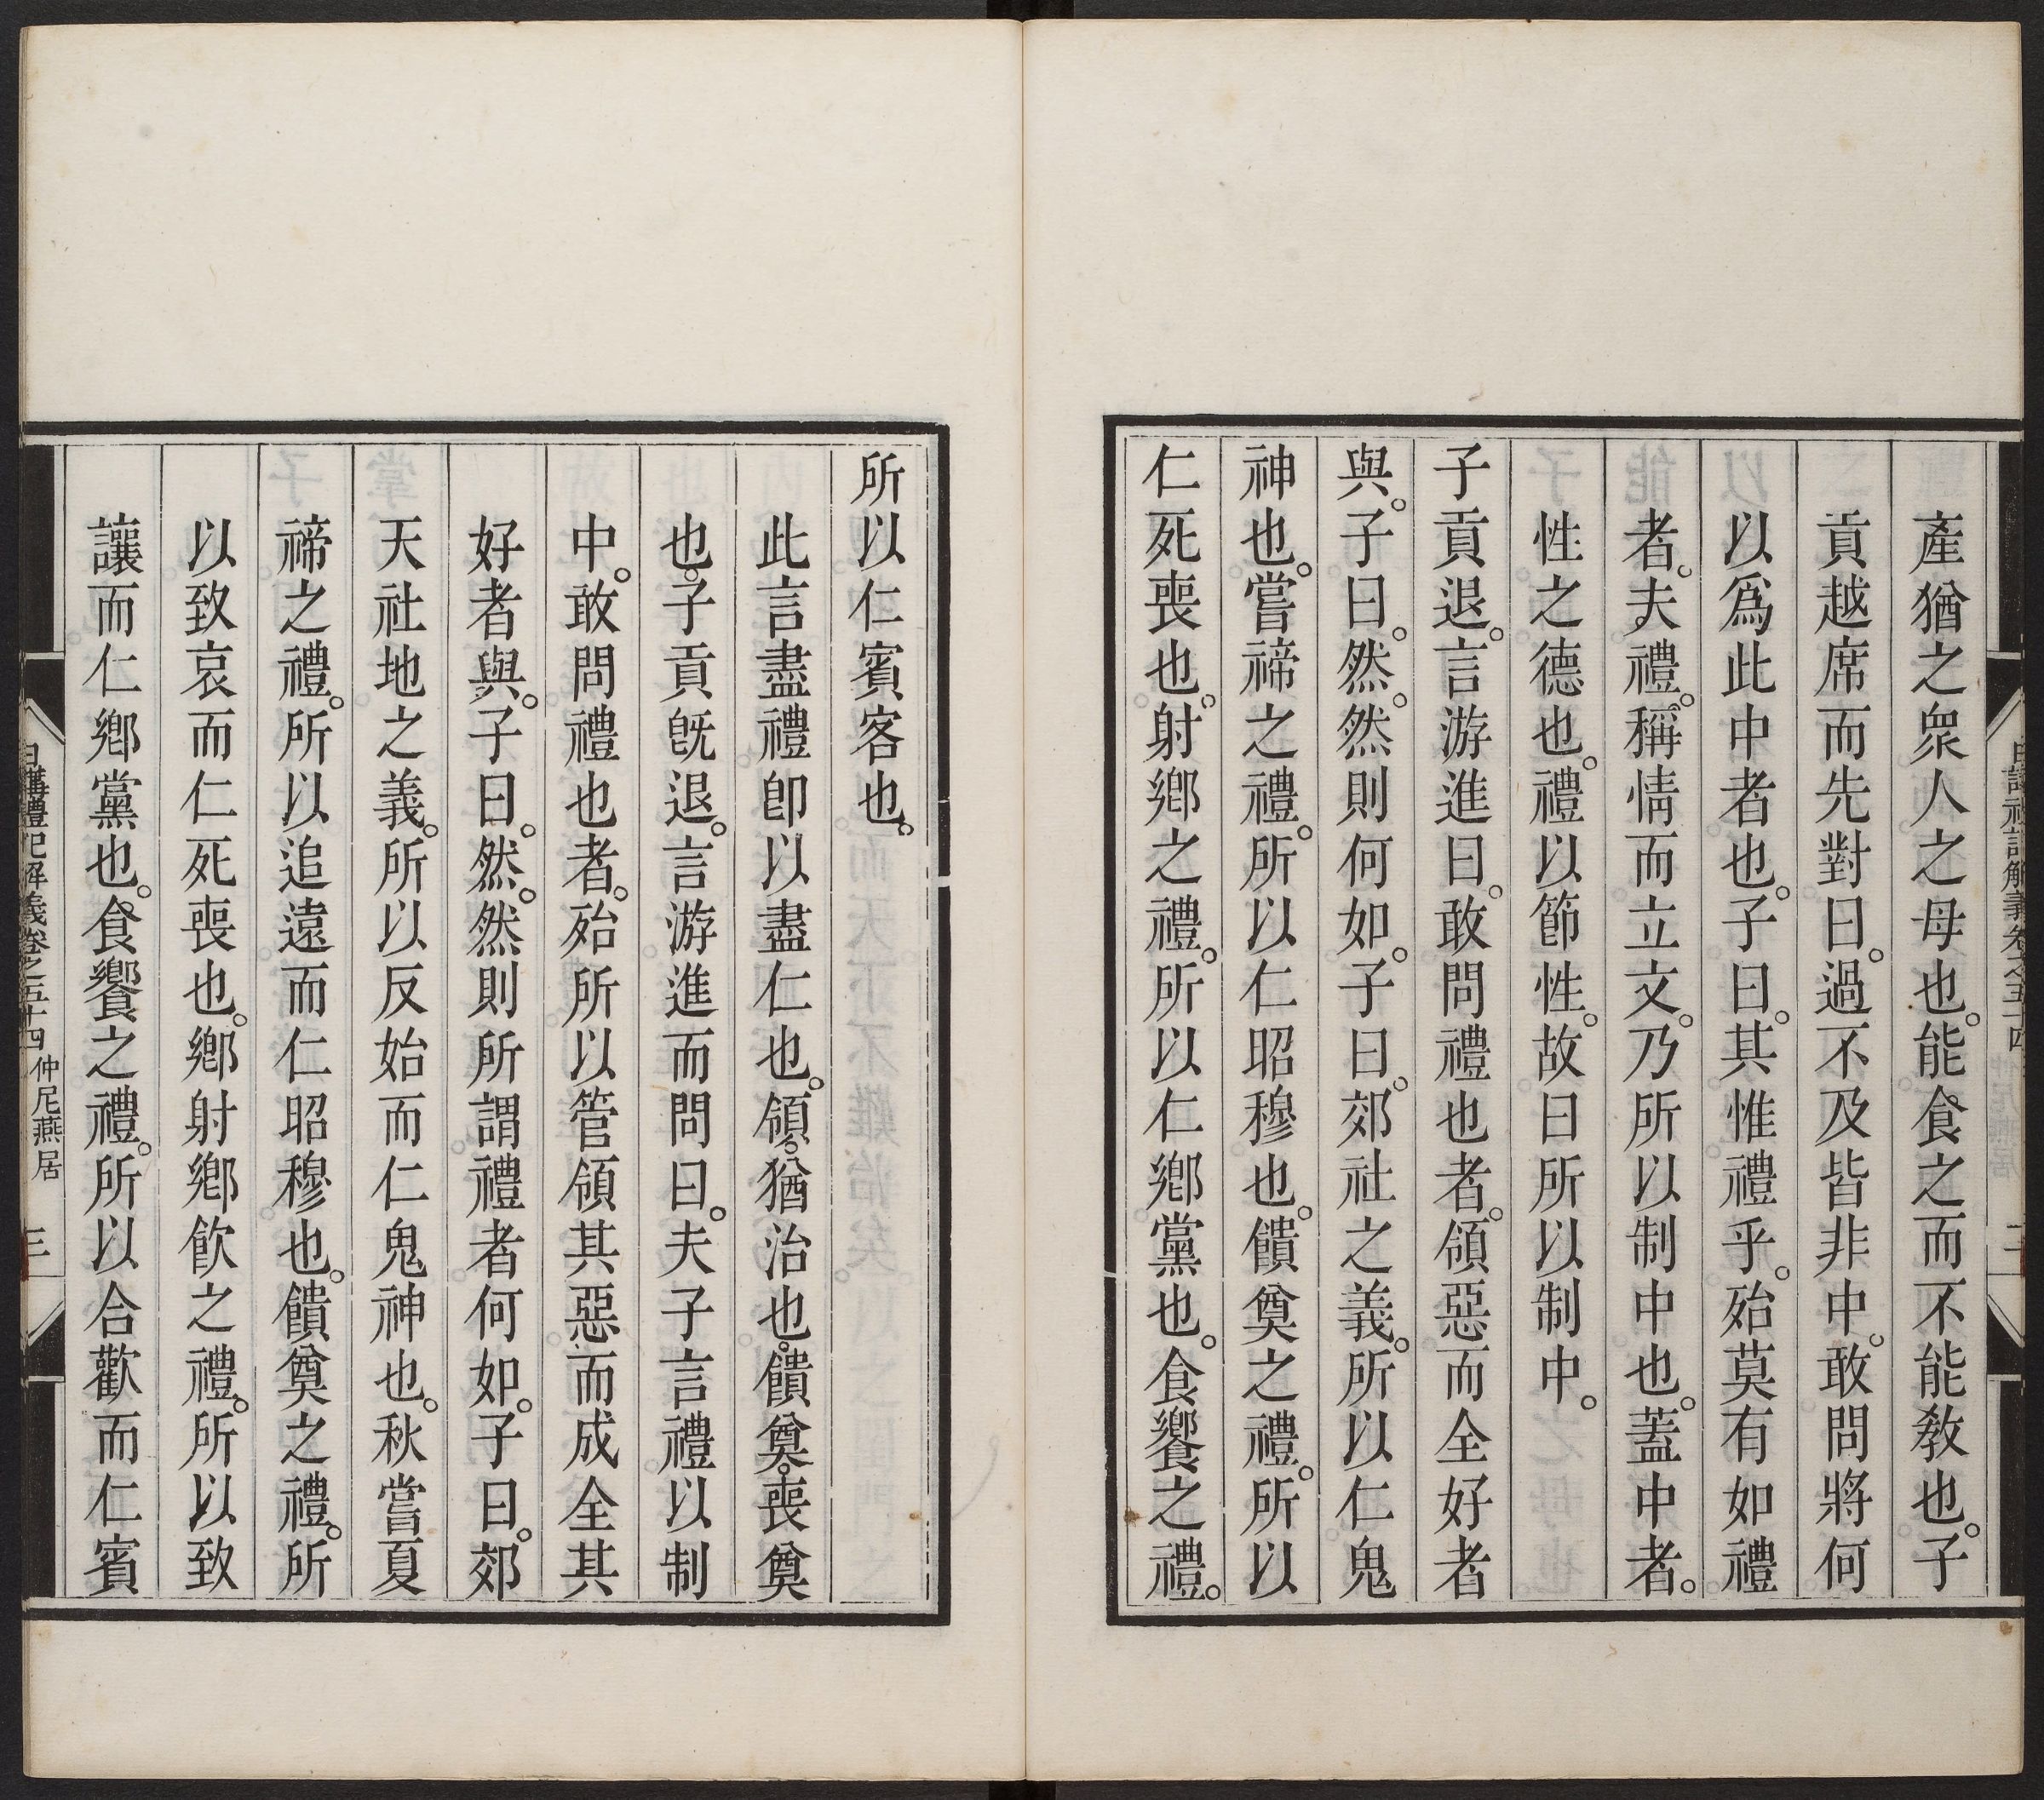 產猶之衆人之母也。能食之而不能敎也。子
貢越席而先對曰。過不及皆非中。敢問將何
以爲此中者也。子曰。其惟禮乎。殆莫有如禮
者。夫禮。稱情而立文。乃所以制中也。蓋中者。
性之德也。禮以節性。故曰所以制中。
子貢退。言游進曰。敢問禮也者。領惡而全好者
與。子曰。然。然則何如。子曰。郊社之義。所以仁鬼
神也。嘗禘之禮。所以仁昭穆也。饋奠之禮。所以
仁死喪也。射鄉之禮。所以仁鄉黨也。食饗之禮。
所以仁賓客也。
此言盡禮卽以盡仁也。領。猶治也。饋奠。喪奠
也。子貢旣退。言游進而問曰。夫子言禮以制
中。敢問禮也者。殆所以管領其惡而成全其
好者與。子曰。然。然則所謂禮者何如。子曰。郊
天社地之義。所以反始而仁鬼神也。秋嘗夏
禘之禮。所以追遠而仁昭穆也。饋奠之禮。所
以致哀而仁死喪也。鄉射鄉飮之禮。所以致
讓而仁鄉黨也。食饗之禮。所以合歡而仁賓
日講禮記解義卷之五十四 仲尼燕居 三